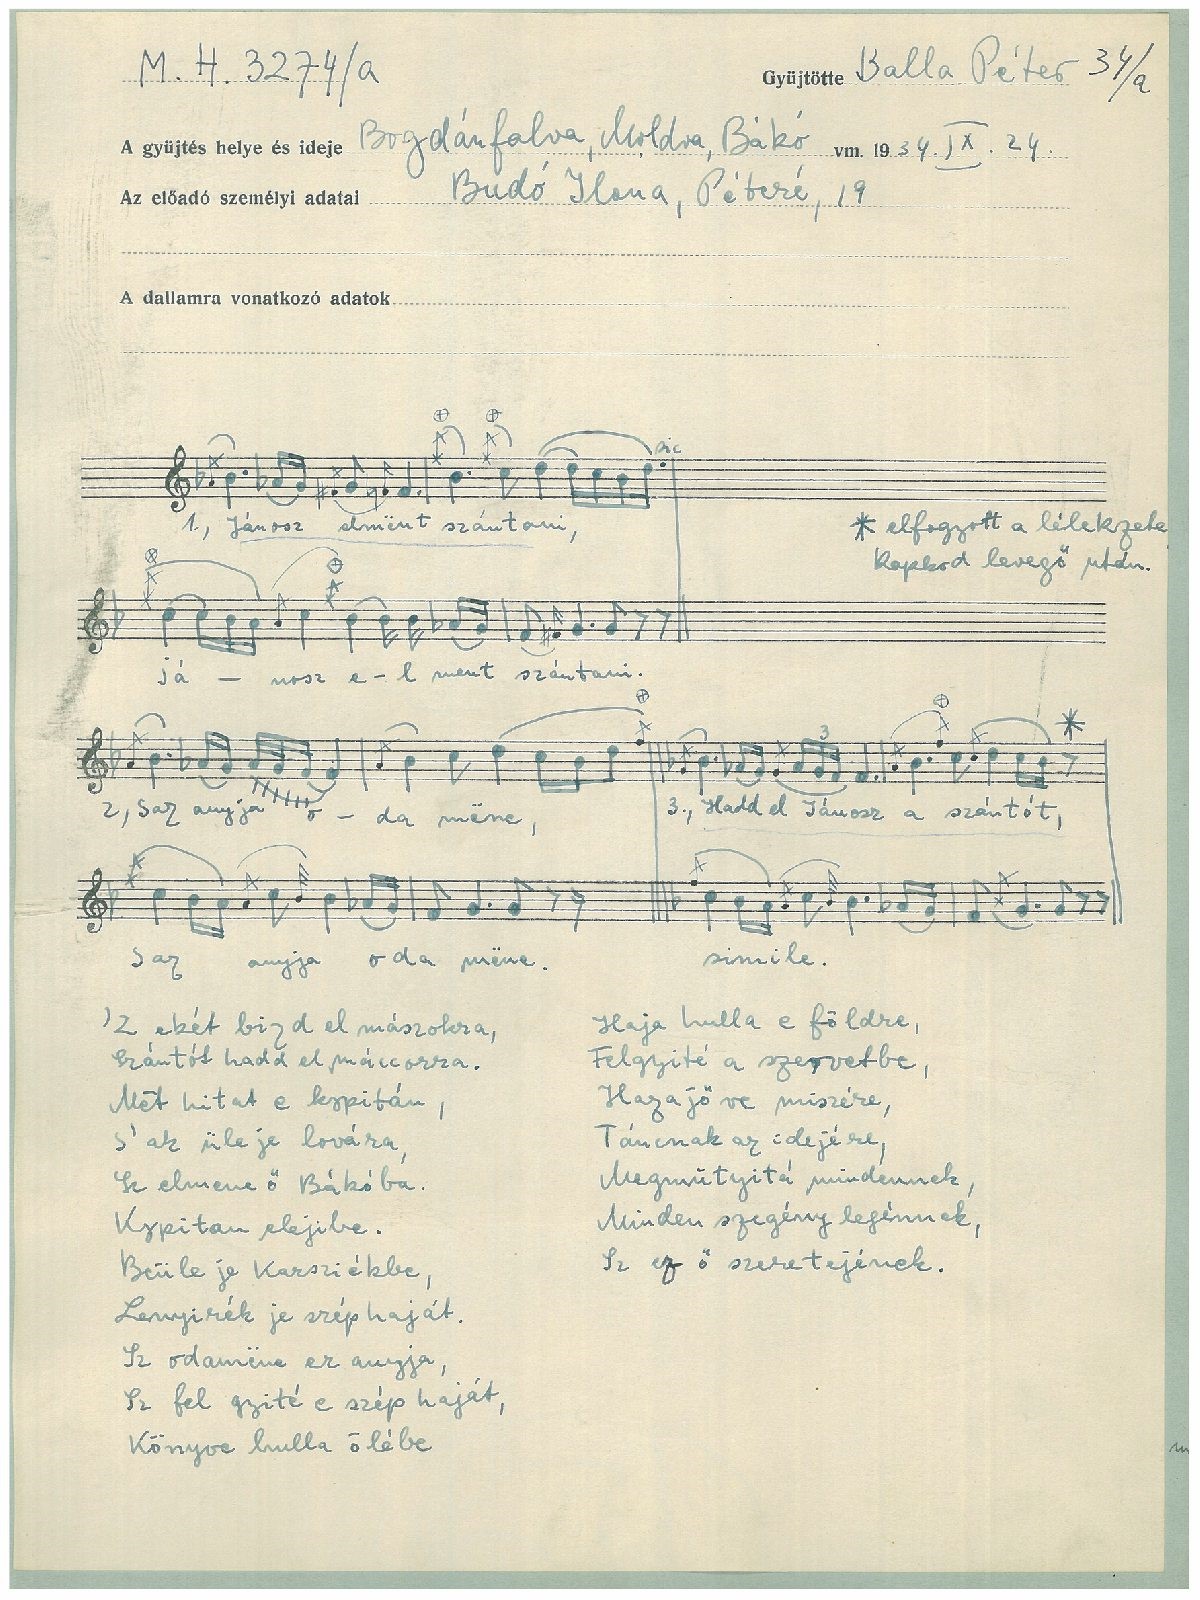 M. H. 3274/a
Gyüjtötte Balla Péter 34/a
A gyüjtés helye és ideje Bogdánfalva, Moldva, Bákó vm. 1934. IX. 24.
Az előadó személyi adatai Budó Ilona, Péteré, 19
A dallamra vonatkozó adatok
sic
1., Jánosz elmënt szántani,
* elfogzott a lélekzete
Kapkod levegő után.
já – nosz e-l ment szántani.
3
2, Saz anyja o – da mëne,
3., Hadd el Jánosz a szántót,
Saz anyja oda mëne.
simile.
'Z ekét bizd el mászokra,
Szántót hadd el máccorra.
Mět hitat e kypitán,
S' ak üle je lovára,
Sz elmene ő Bákóba.
Kypitan elejibe.
Beüle je Karsziékbe,
Lenyirék je szép haját.
Sz odamëne ez anyja,
Sz fel gzité e szép haját,
Könyve hulla ölébe
Haja hulla e földre,
Felgyité a szervetbe,
Hazajőve miszére,
Táncnak az idejére,
Megmutyitá mindennek,
Minden szegény legénnek,
Sz ez ő szeretejének.